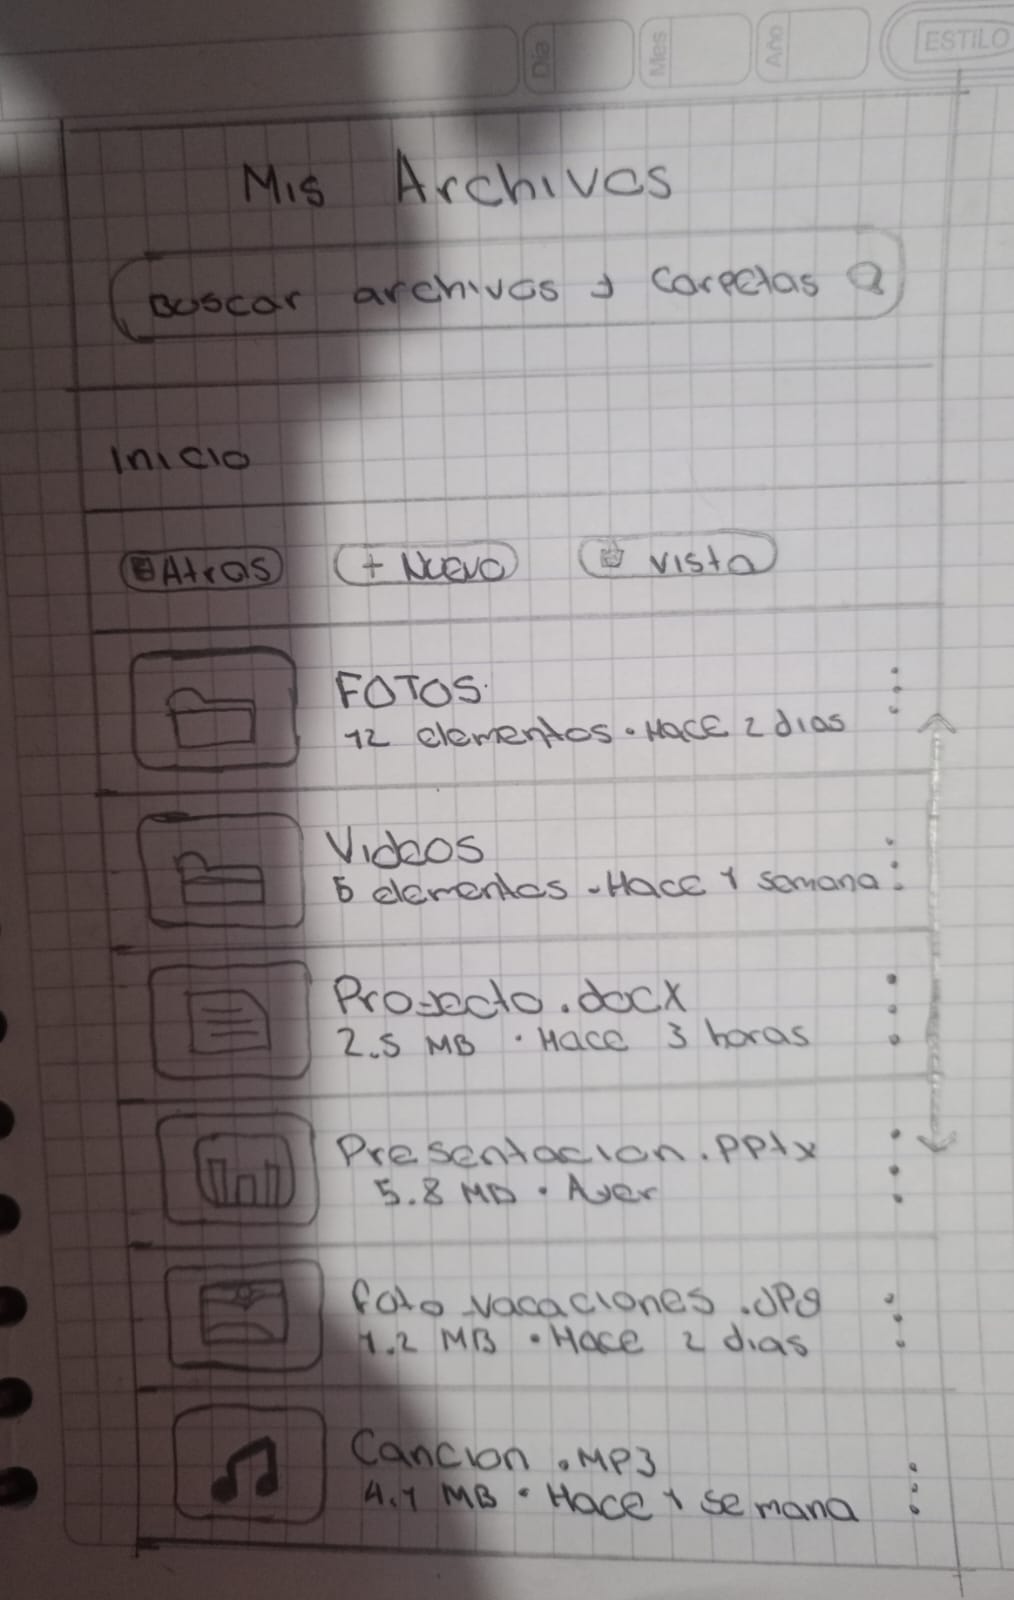 Día
Mes
Año
ESTILO
Mis Archivos
Buscar archivos y carpetas
Inicio
Atras
+ Nuevo
vista
FOTOS
12 elementos • Hace 2 dias
Videos
5 elementos • Hace 1 semana
Proyecto.docx
2.5 MB • Hace 3 horas
Presentacion.pptx
5.8 MB • Ayer
foto_vacaciones.JPg
1.2 MB • Hace 2 dias
Cancion.MP3
4.1 MB • Hace 1 semana